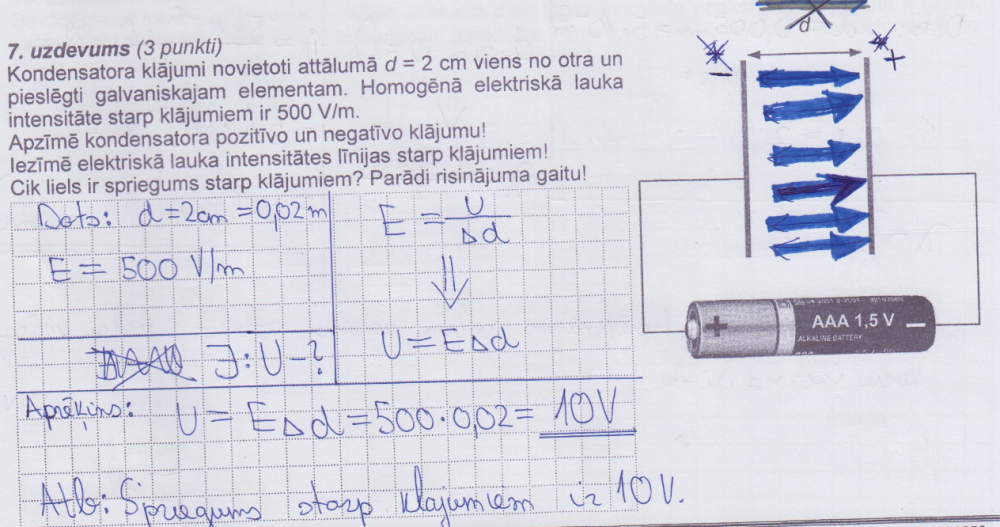 d
7. uzdevums (3 punkti)
Kondensatora klājumi novietoti attālumā d = 2 cm viens no otra un
pieslēgti galvaniskajam elementam. Homogēnā elektriskā lauka
intensitāte starp klājumiem ir 500 V/m.
Apzīmē kondensatora pozitīvo un negatīvo klājumu!
Iezīmē elektriskā lauka intensitātes līnijas starp klājumiem!
Cik liels ir spriegums starp klājumiem? Parādi risinājuma gaitu!
- +
Dots: d = 2cm = 0,02 m
E = 500 V/m
J: U - ?
E = U / Δd
⇓
U = EΔd
+ AAA 1,5 V -
ALKALINE BATTERY
Aprēķins: U = EΔd = 500·0,02 = 10V
Atb: Spriegums starp klajumiem ir 10V.